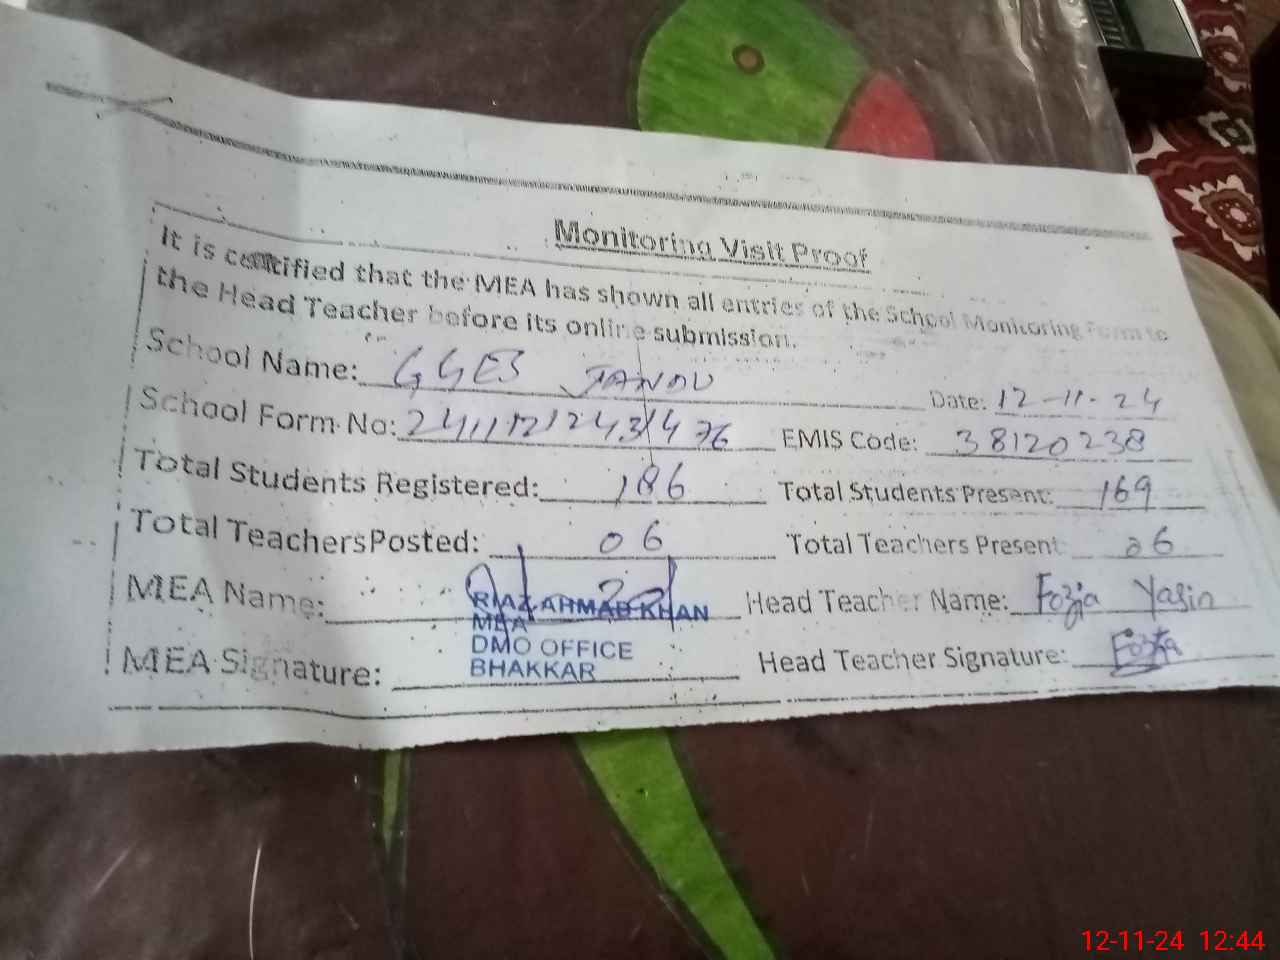 Monitoring Visit Proof
It is certified that the MEA has shown all entries of the School Monitoring Form to
the Head Teacher before its online submission.
School Name: GGES JANDU Date: 12-11-24
School Form No: EMIS Code: 38120238
Total Students Registered: 186 Total Students Present: 169
Total Teachers Posted: 06 Total Teachers Present: 06
MEA Name: RIAZ AHMAD KHAN Head Teacher Name: Fozia Yasin
MEA
DMO OFFICE
MEA Signature: BHAKKAR Head Teacher Signature: Fozia
12-11-24 12:44